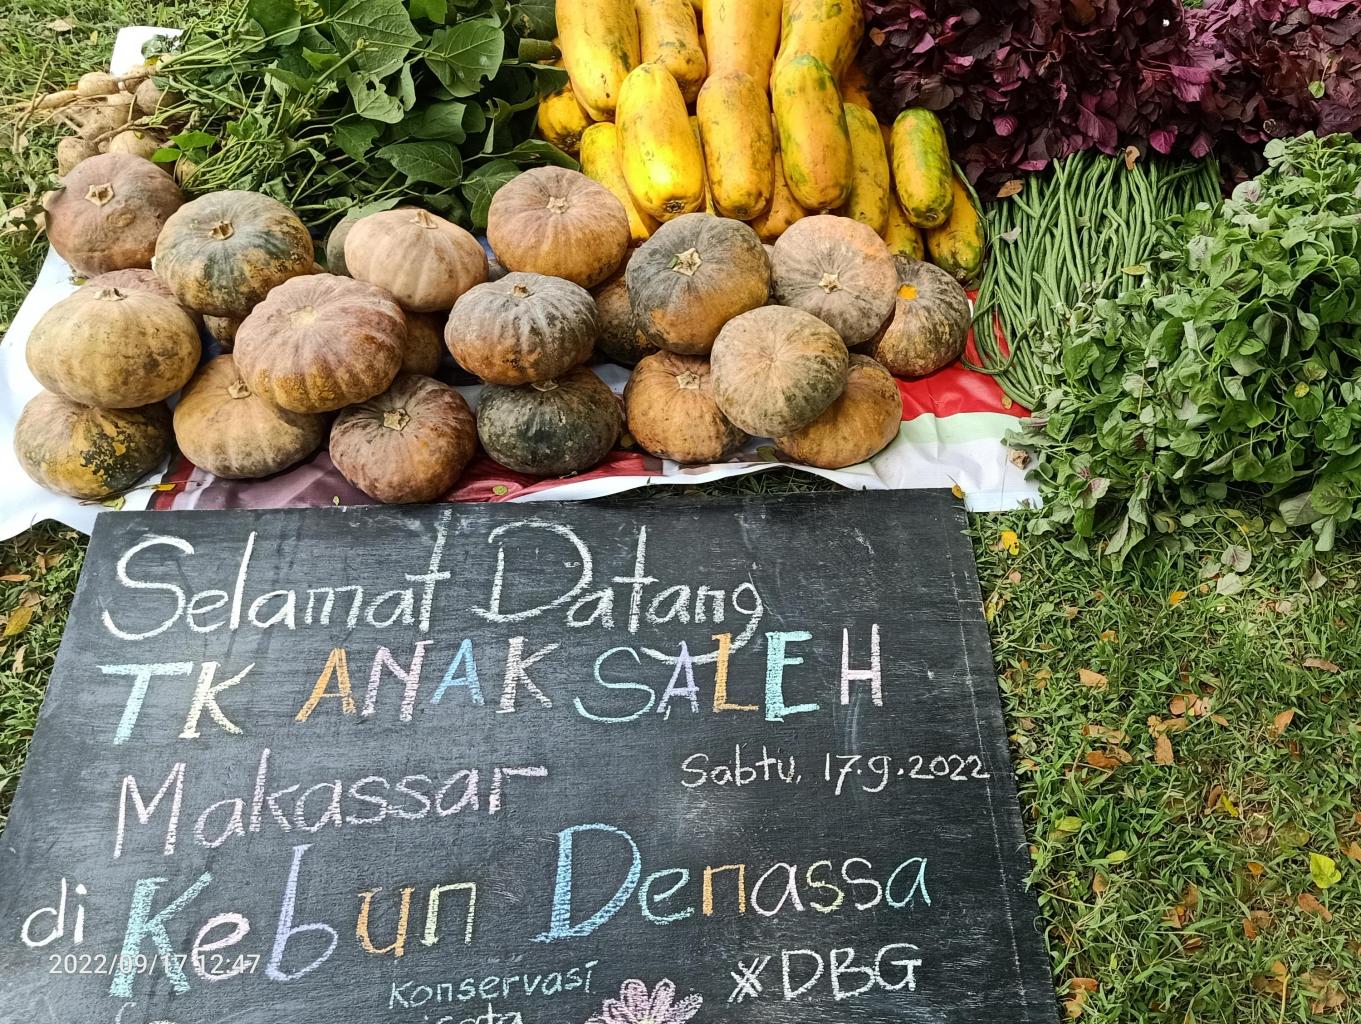 Selamat Datang
TK ANAK SALEH
Makassar
Sabtu, 17.9.2022
di Kebun Denassa
2022/09/17 12:47
Konservasi
DBG